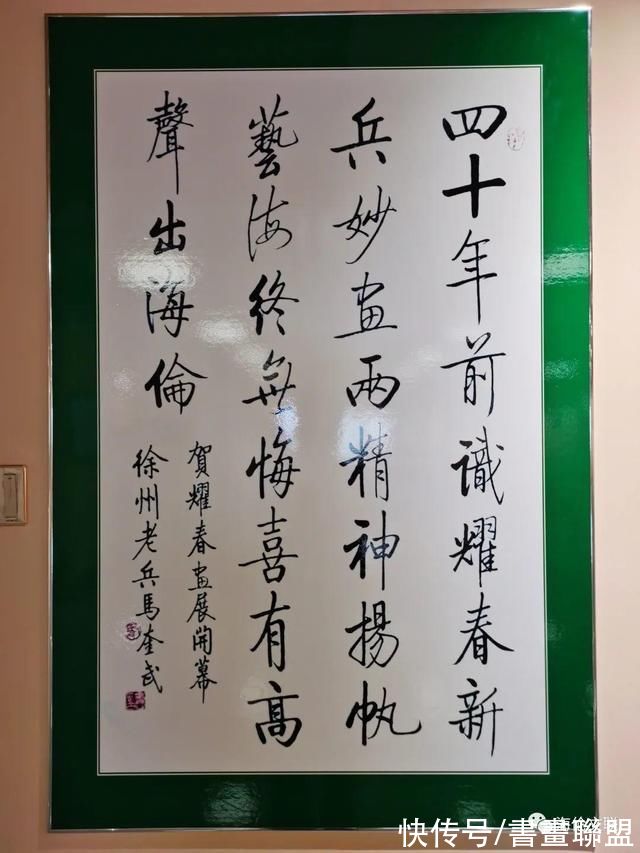 四十年前識耀春新
兵妙画两精神揚帆
藝海终無悔喜有高
聲出海倫
賀耀春画展開幕
徐州老兵馬奎武
快传号/書畫聯盟